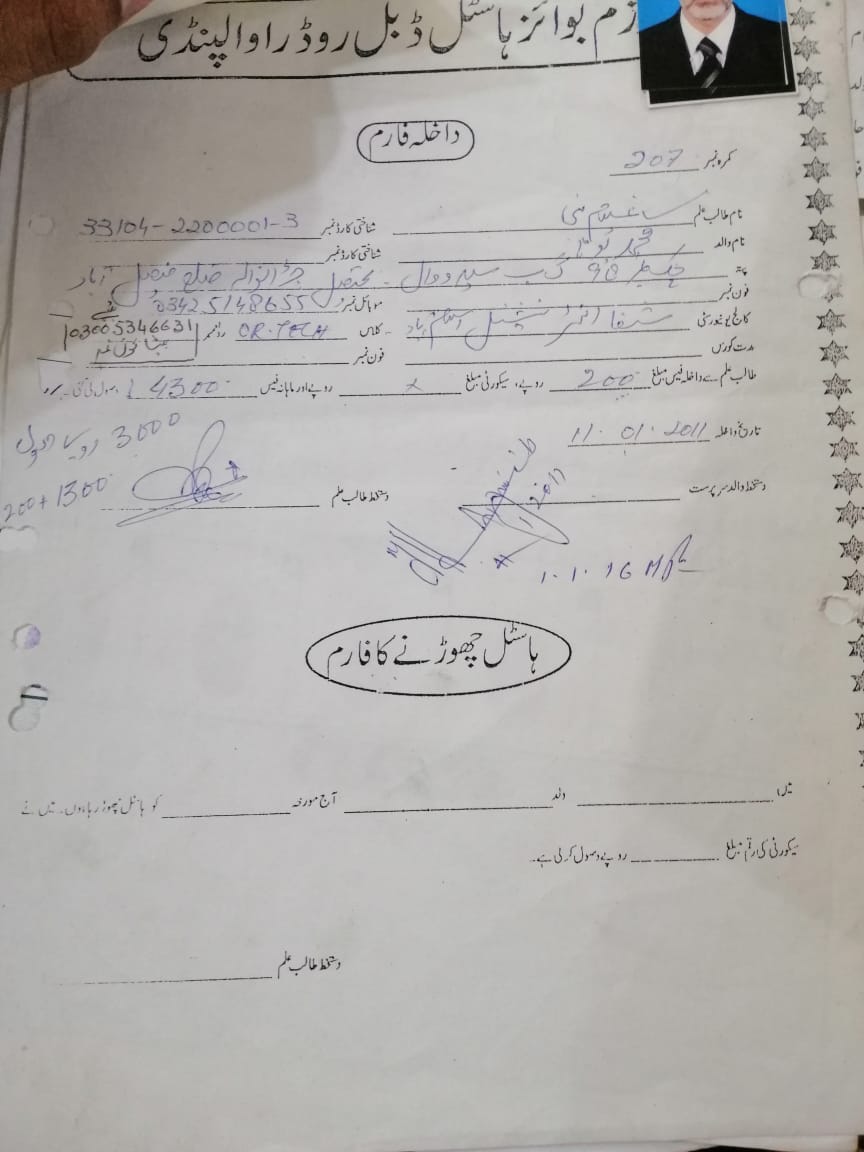 زم بوائز ہاسٹل ڈبل روڈ راولپنڈی
داخلہ فارم
کمرہ نمبر 207
نام طالب علم شناختی کارڈ نمبر 33104-2200001-3
نام والد محمد شناختی کارڈ نمبر
پتہ چک نمبر 98 گ ب تحصیل جڑانوالہ ضلع فیصل آباد
فون نمبر موبائل نمبر 03425148655
کالج/یونیورسٹی شفا انٹرنیشنل اسلام آباد کلاس OR.TECH رول نمبر 03005346631
مدت کورس فون نمبر
طالب علم سے داخلہ فیس مبلغ 200 روپے، سیکورٹی مبلغ x روپے اور ماہانہ فیس 4300 وصول کی گئی۔
تاریخ داخلہ 11.01.2011 3000
دستخط والد سرپرست دستخط طالب علم 200+1300
1.1.16
ہاسٹل چھوڑنے کا فارم
میں ولد آج مورخہ کو ہاسٹل چھوڑ رہا ہوں۔ میں نے
سیکورٹی کی رقم مبلغ روپے وصول کر لی ہے۔
دستخط طالب علم